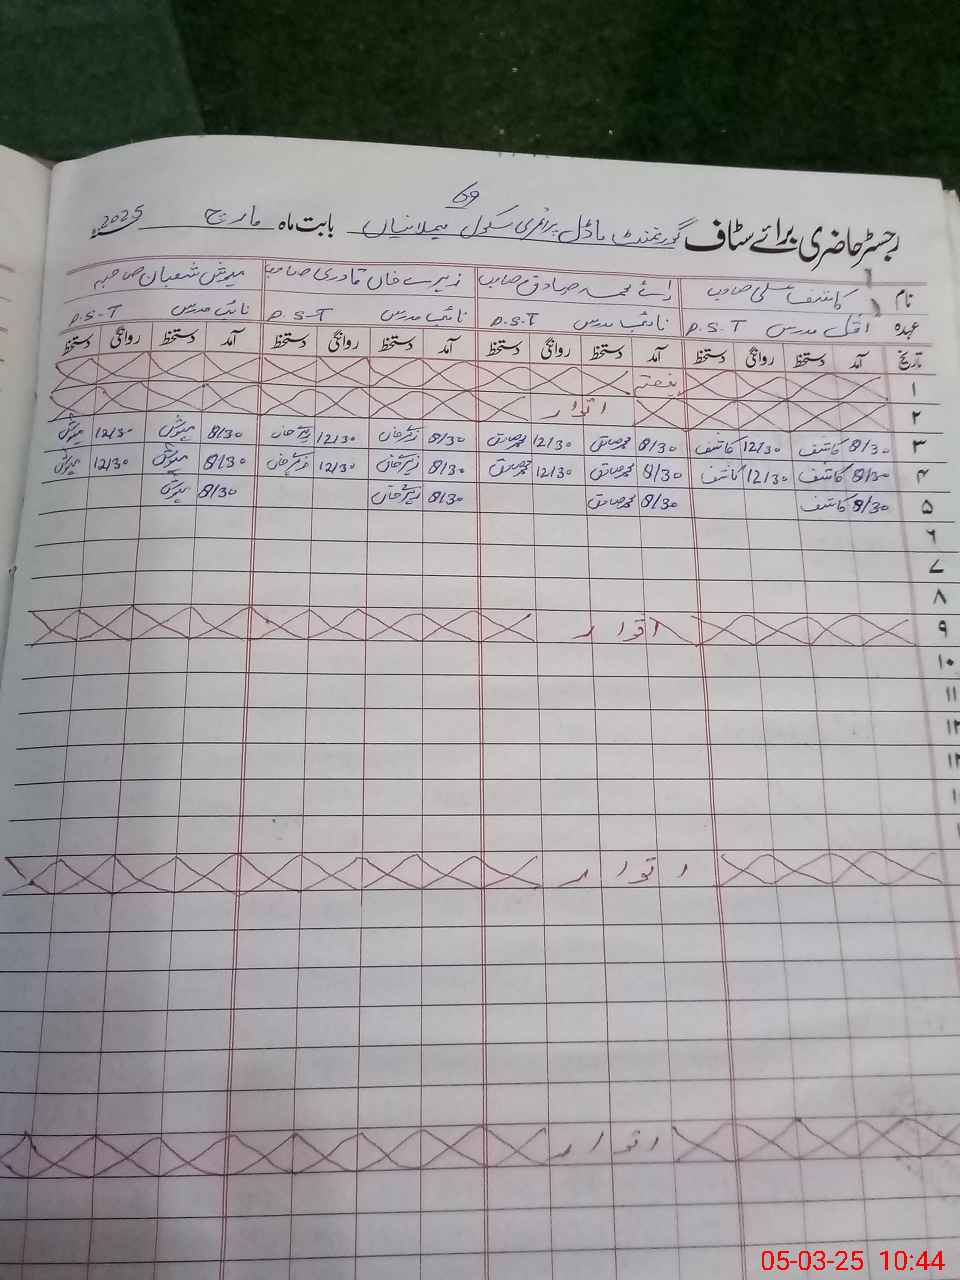 69
رجسٹر حاضری برائے سٹاف گورنمنٹ ماڈل پرائمری سکول بابت ماہ مارچ 2025ء
نام کاشف علی صاحب رائے محمد صادق صاحب زبیر خاں قادری صاحب مہوش شعبان صاحبہ
عہدہ اول مدرس P.S.T نائب مدرس P.S.T نائب مدرس P.S.T نائب مدرس P.S.T
تاریخ آمد دستخط روانگی دستخط آمد دستخط روانگی دستخط آمد دستخط روانگی دستخط آمد دستخط روانگی دستخط
۱ ہفتہ
۲ اتوار
۳ 8/30 کاشف 12/30 کاشف 8/30 محمد صادق 12/30 محمد صادق 8/30 زبیر خاں 12/30 زبیر خاں 8/30 مہوش 12/30 مہوش
۴ 8/30 کاشف 12/30 کاشف 8/30 محمد صادق 12/30 محمد صادق 8/30 زبیر خاں 12/30 زبیر خاں 8/30 مہوش 12/30 مہوش
۵ 8/30 کاشف 8/30 محمد صادق 8/30 زبیر خاں 8/30 مہوش
۶
۷
۸
۹ اتوار
۱۰
۱۱
۱۲
۱۳
اتوار
اتوار
05-03-25 10:44